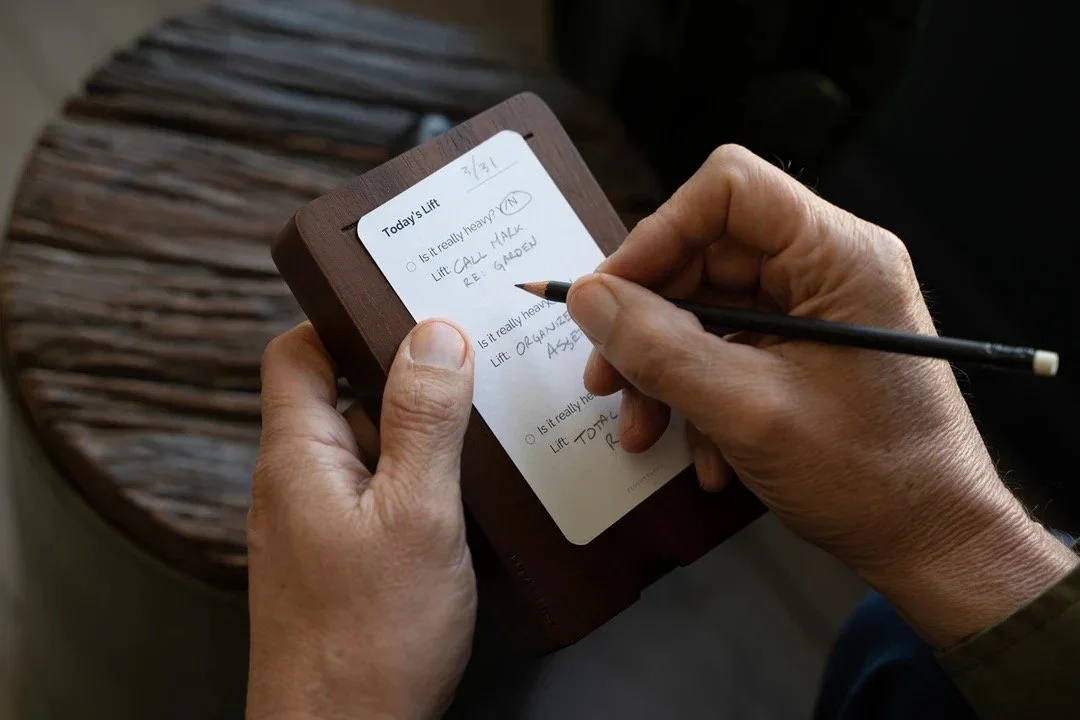 3/31
Today's Lift
Is it really heavy? Y/N
Lift: CALL MARK
RE: GARDEN
Is it really heavy
Lift: ORGANIZE
Is it really
Lift: TOTAL